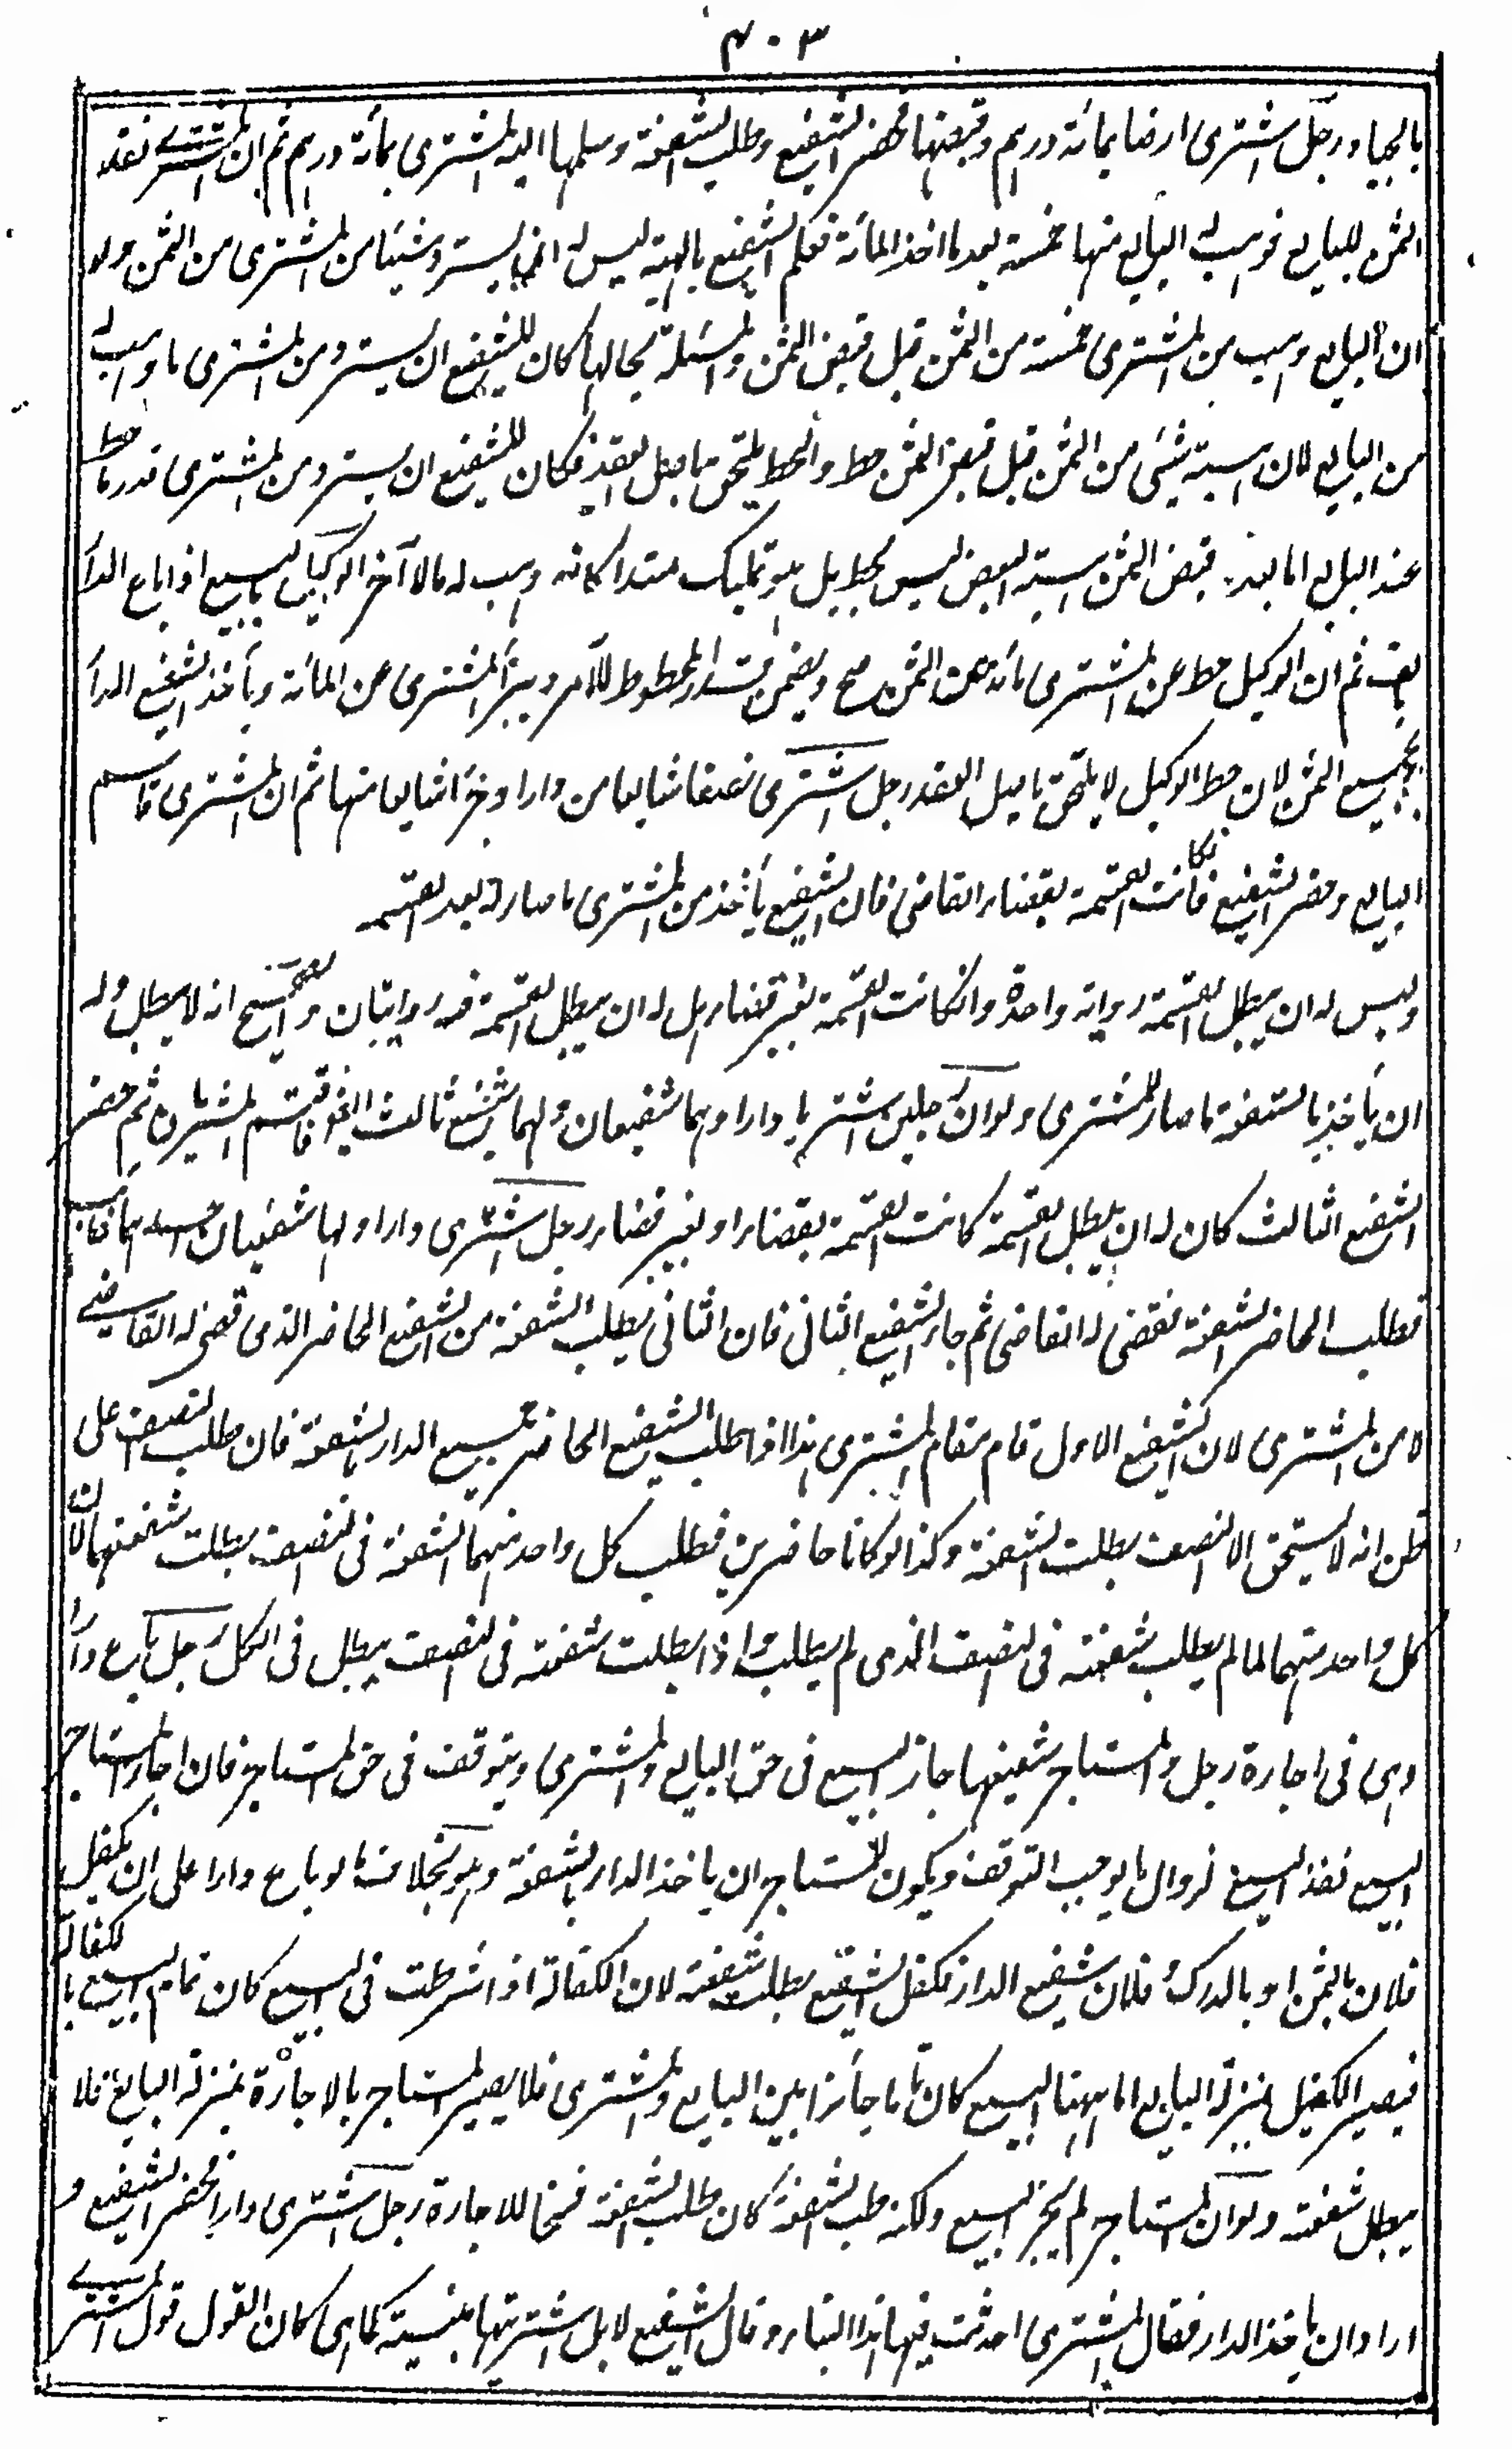 ٤٠٣
بالجياد رجل اشترى ارضا بمائة درهم وقبضها فحضر الشفيع وطلب الشفعة وسلمها اليه المشترى بمائة درهم ثم ان المشترى نقد
الثمن للبايع فوهب له البايع منها خمسة بعد ما اخذ المائة فعلم الشفيع بالهبة ليس له ان يسترد شيئا من المشترى من الثمن ولو
ان البايع وهب من المشترى خمسة من الثمن قبل قبض الثمن والمسئلة بحالها كان للشفيع ان يسترد من المشترى ما وهب له
من البايع لان هبة شئ من الثمن قبل قبض الثمن حط والحط يلتحق باصل العقد فكان للشفيع ان يسترد من المشترى قدر ما حط
عند البايع اما بعد قبض الثمن هبة البعض ليس بحط بل هو تمليك مبتدا كانه وهب له مالا آخر الوكيل بالبيع اذا باع الدار
بالف ثم ان الوكيل حط عن المشترى مائة من الثمن صح ويضمن قدر المحطوط للآمر ويبرأ المشترى عن المائة ويأخذ الشفيع الدار
بجميع الثمن لان حط الوكيل لا يلتحق باصل العقد رجل اشترى نصفا شايعا من دار او جزأ شايعا منها ثم ان المشترى قاسم
البايع وحضر الشفيع فكانت القسمة بقضاء القاضى فان الشفيع يأخذ من المشترى ما صار له بعد القسمه
وليس له ان يبطل القسمة رواية واحدة وان كانت القسمة بغير قضاء هل له ان يبطل القسمة فيه روايتان والصحيح انه لا يبطل وله
ان يأخذ بالشفعة ما صار للمشترى ولو ان رجلين اشتريا دارا وهما شفيعان ولهما شفيع ثالث اقتسم المشتريان ثم حضر
الشفيع الثالث كان له ان يبطل القسمة كانت القسمة بقضاء او بغير قضاء رجل اشترى دارا ولها شفيعان احدهما غايب
فطلب الحاضر الشفعة فقضى له القاضى ثم جاء الشفيع الثانى فان الثانى يطلب الشفعة من الشفيع الحاضر الذى قضى له القاضى
لا من المشترى لان الشفيع الاول قام مقام المشترى هذا اذا طلب الشفيع الحاضر جميع الدار بالشفعة فان طلب النصف على
ظن انه لا يستحق الا النصف بطلت الشفعة وكذا لو كانا حاضرين فطلب كل واحد منهما الشفعة فى النصف بطلت شفعتهما لان
كل واحد منهما لما لم يطلب شفعته فى النصف الذى لم يطلب واذا بطلت شفعته فى النصف يبطل فى الكل رجل باع دارا
وهى فى اجارة رجل والمستاجر شفيعها جاز البيع فى حق البايع والمشترى ويتوقف فى حق المستاجر فان اجاز المستاجر
البيع نفذ البيع لزوال ما يوجب التوقف ويكون للمستاجر ان ياخذ الدار بالشفعة وهو بخلاف ما لو باع دارا على ان يكفل
فلان بالثمن او بالدرك و فلان شفيع الدار فكفل الشفيع بطلت شفعته لان الكفالة اذا شرطت فى البيع كان تمام البيع بالكفالة
فيصير الكفيل بمنزلة البايع اما ههنا البيع كان تاما جائزا بين البايع والمشترى فلا يصير المستاجر بالاجازة بمنزلة البايع فلا
يبطل شفعته ولو ان المستاجر لم يجز البيع ولكنه طلب الشفعة كان طلب الشفعة فسخا للاجارة رجل اشترى دارا فحضر الشفيع و
اراد ان ياخذ الدار فقال المشترى احدثت فيها هذا البناء وقال الشفيع لا بل اشتريتها مبنية كما هى كان القول قول المشترى